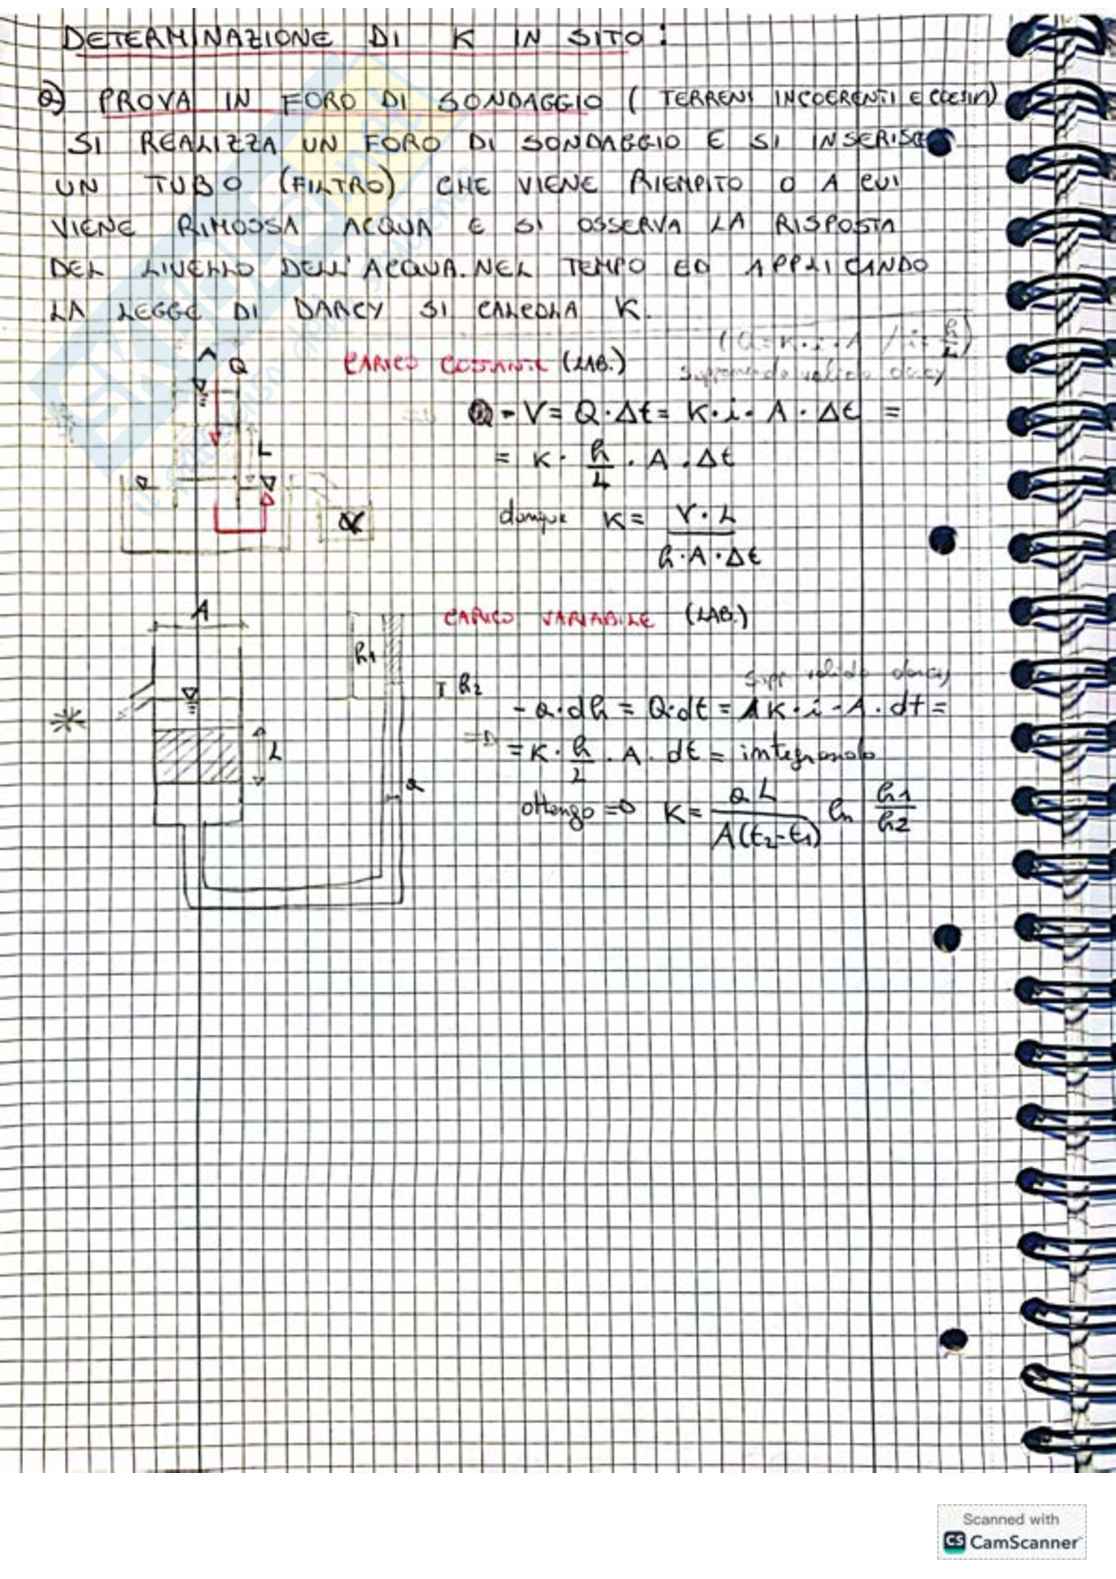 DETERMINAZIONE DI K IN SITO:
a) PROVA IN FORO DI SONDAGGIO ( TERRENI INCOERENTI E COESIVI)
SI REALIZZA UN FORO DI SONDAGGIO E SI INSERISCE
UN TUBO (FILTRO) CHE VIENE RIEMPITO O A CUI
VIENE RIMOSSA ACQUA E SI OSSERVA LA RISPOSTA
DEL LIVELLO DELL'ACQUA. NEL TEMPO ED APPLICANDO
LA LEGGE DI DARCY SI CALCOLA K.
(Q=K·i·A / i=h/L)
supponendo valido darcy
A Q
CARICO COSTANTE (LAB.)
V = Q·Δt = K·i·A·Δt =
= K · h/L · A · Δt
L
dunque K = V·L / h·A·Δt
V
CARICO VARIABILE (LAB.)
A
h1
h2
supp valido darcy
-a·dh = Q·dt = K·i·A·dt =
= K · h/L · A · dt = integrando
L
a
ottengo => K = aL / A(t2-t1) ln h1/h2
Scanned with
CS CamScanner